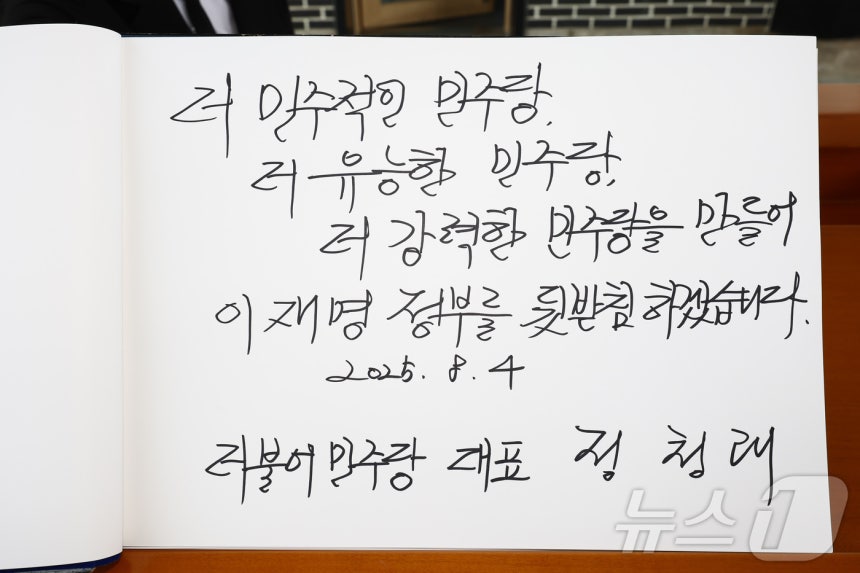 더 민주적인 민주당,
더 유능한 민주당,
더 강력한 민주당을 만들어
이재명 정부를 뒷받침하겠습니다.
2025. 8. 4
더불어민주당 대표 정청래
뉴스1